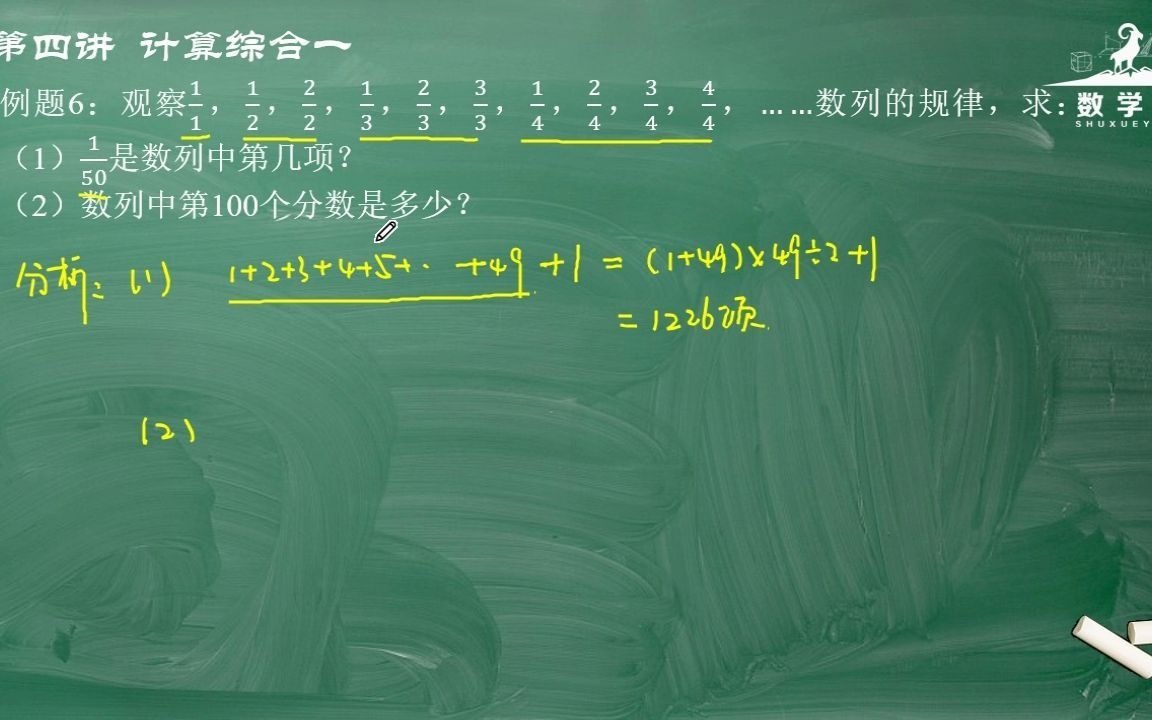 第四讲 计算综合一
例题6：观察1/1，1/2，2/2，1/3，2/3，3/3，1/4，2/4，3/4，4/4，……数列的规律，求：
数学
SHUXUEY
（1）1/50是数列中第几项？
（2）数列中第100个分数是多少？
分析：(1) 1+2+3+4+5+..+49+1=(1+49)×49÷2+1
=1226项.
(2)